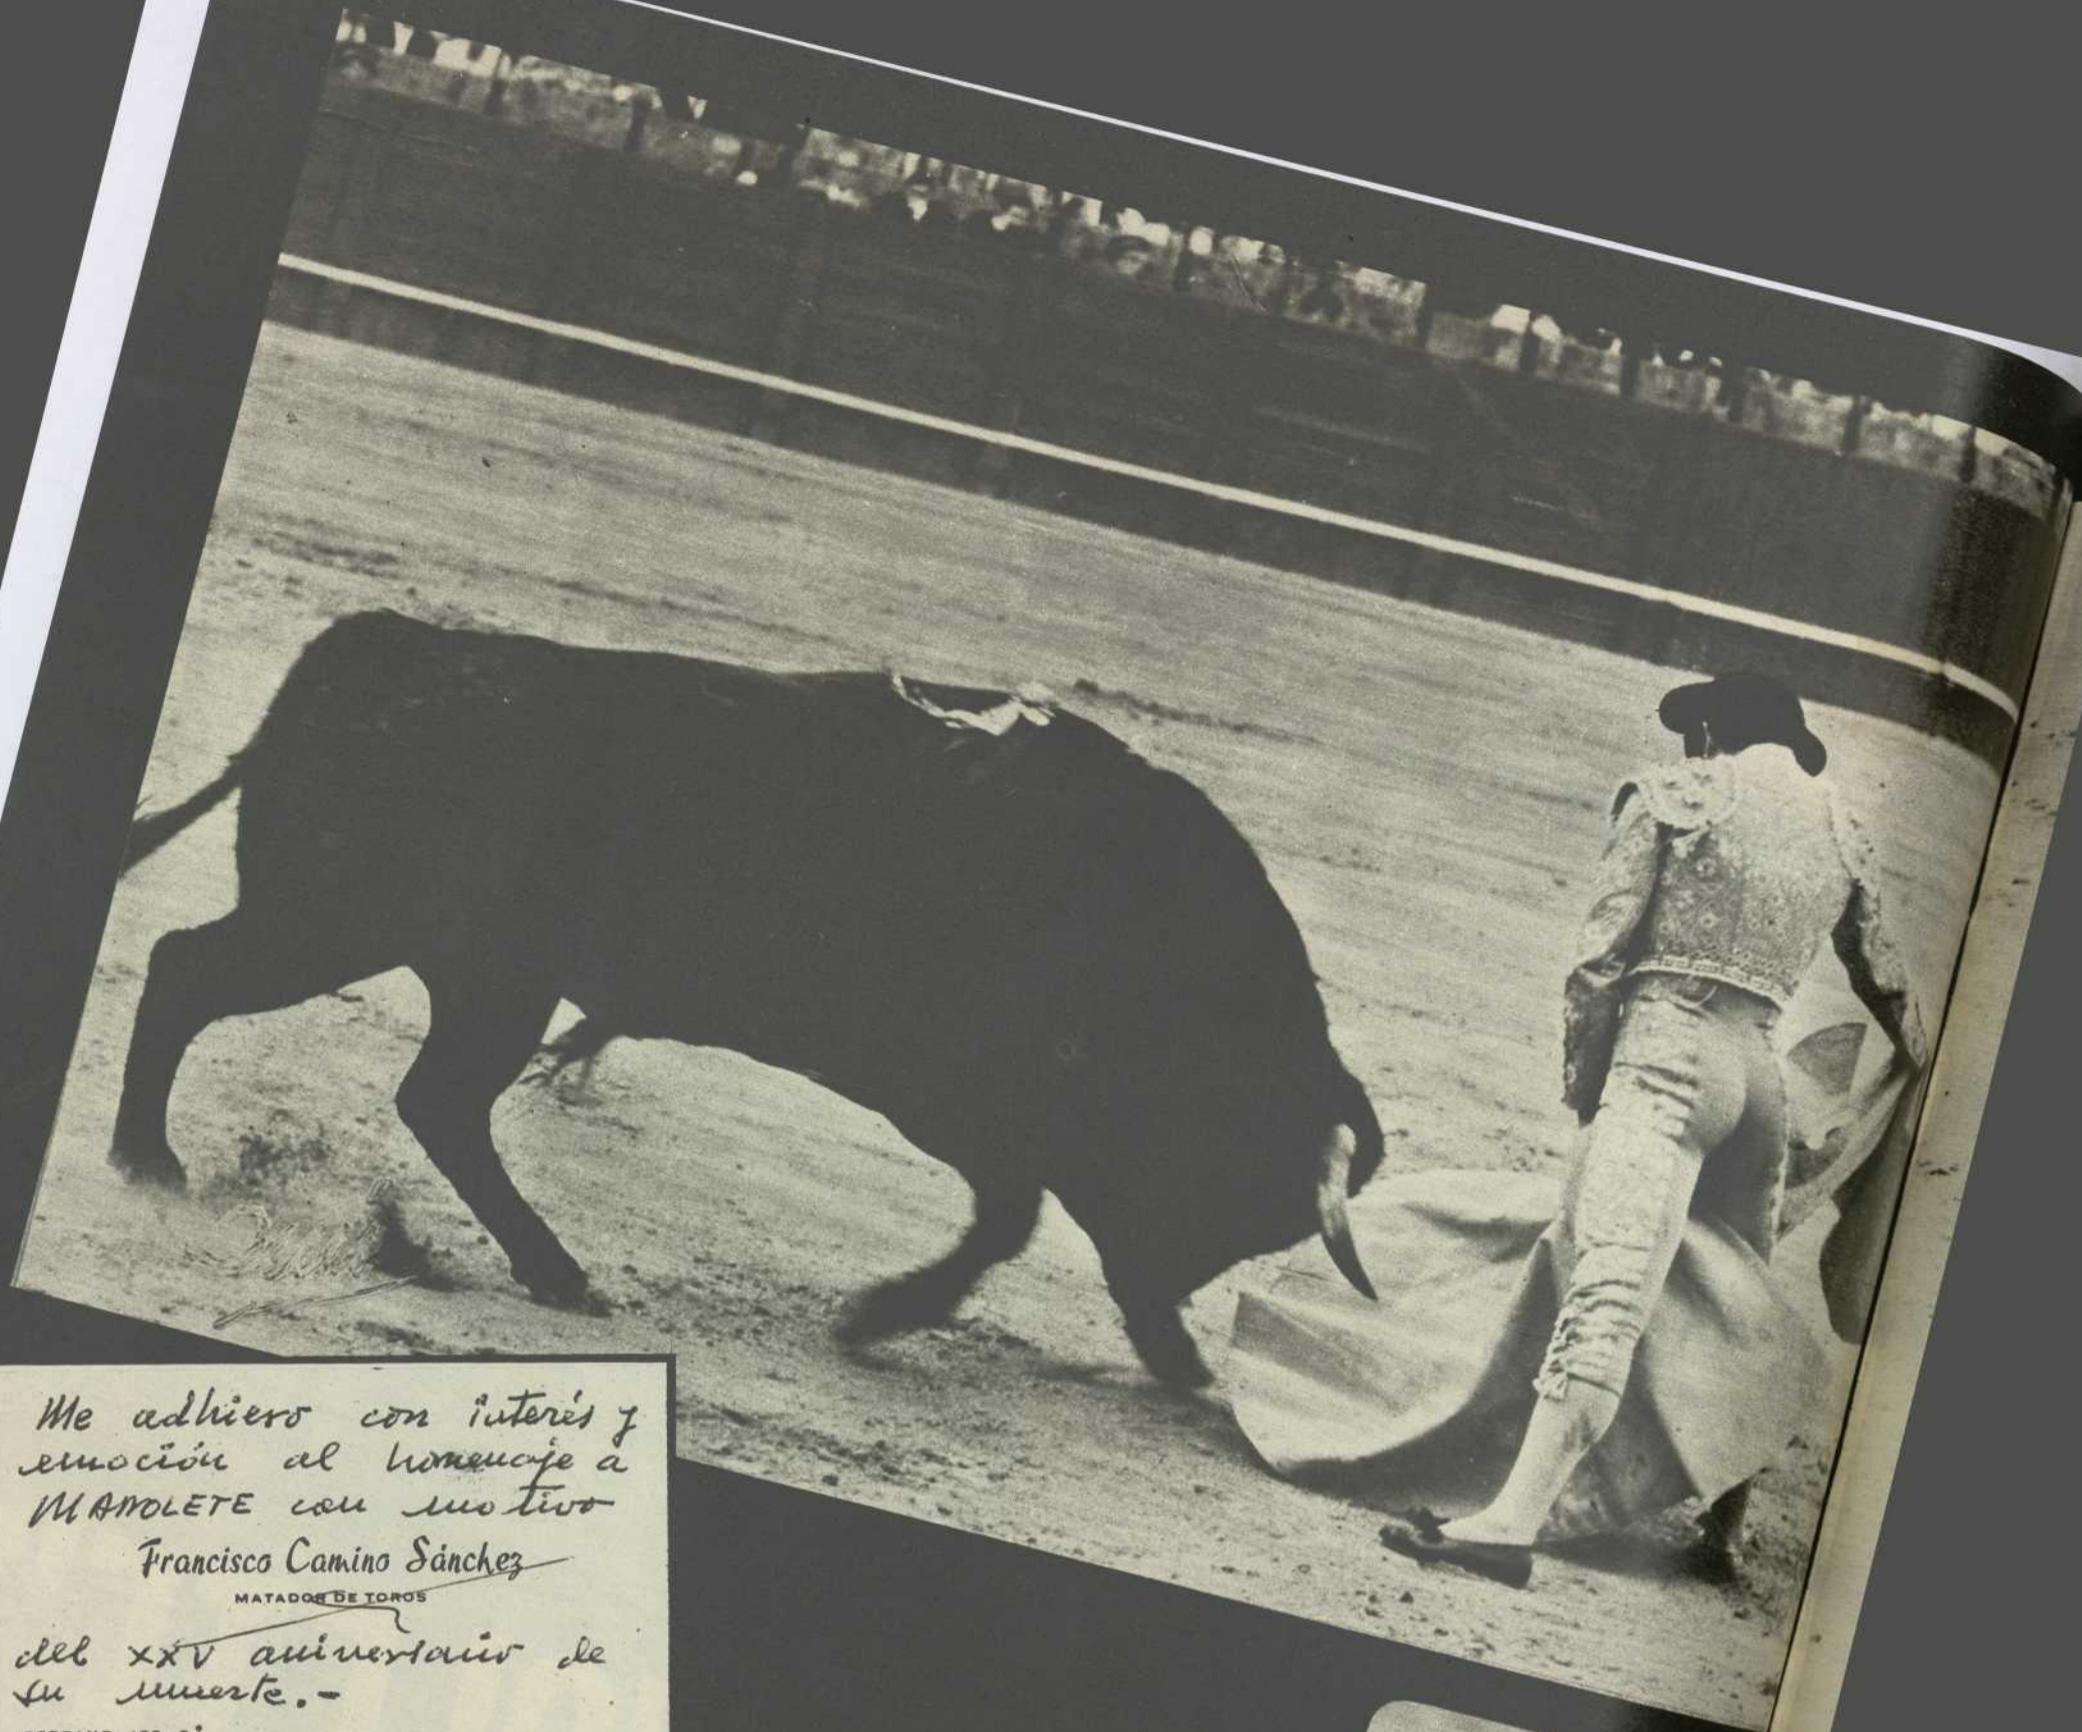 Me adhiero con interés y
emoción al homenaje a
MANOLETE con motivo
Francisco Camino Sánchez
MATADOR DE TOROS
del XXV aniversario de
su muerte.-